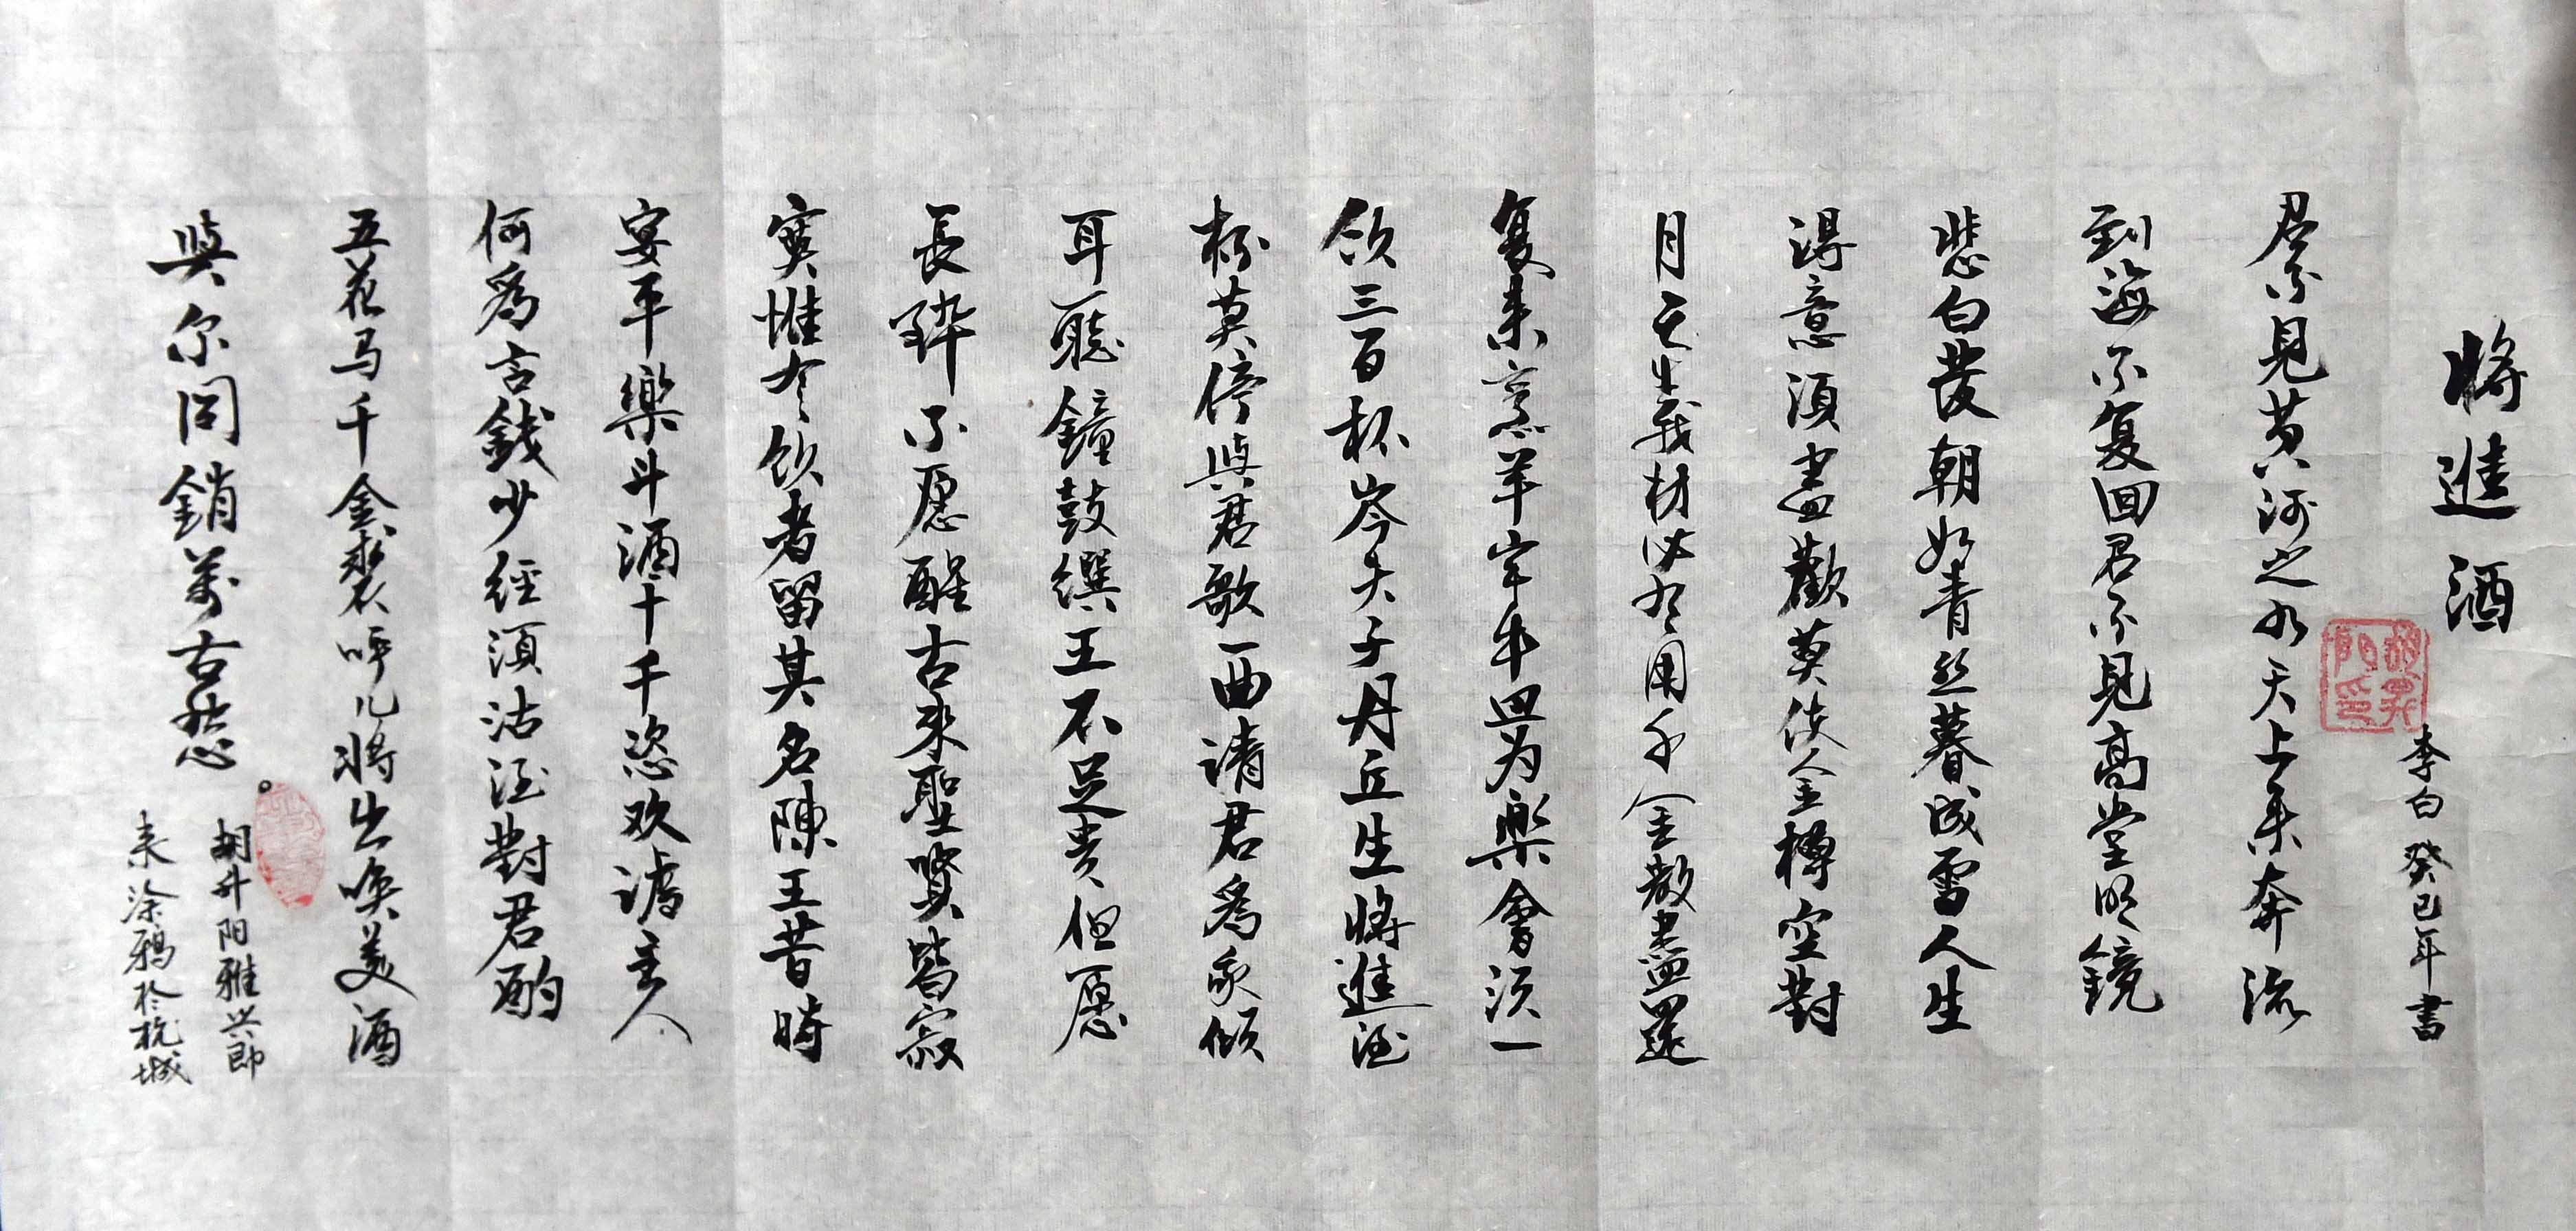 將進酒
李白 癸巳年書
君不見黄河之水天上来奔流
到海不复回君不見高堂明鏡
悲白发朝如青丝暮成雪人生
得意須盡歡莫使金樽空對
月天生我材必有用千金散盡還
复来烹羊宰牛且为樂會须一
饮三百杯岑夫子丹丘生將進酒
杯莫停與君歌一曲请君爲我倾
耳聽鐘鼓饌玉不足贵但愿
長醉不愿醒古来聖賢皆寂
寞惟有饮者留其名陳王昔時
宴平樂斗酒十千恣欢谑主人
何爲言錢少經須沽酒對君酌
五花马千金裘呼儿將出唤美酒
與尔同銷萬古愁。
胡升阳雅兴即
来涂鴉於杭城